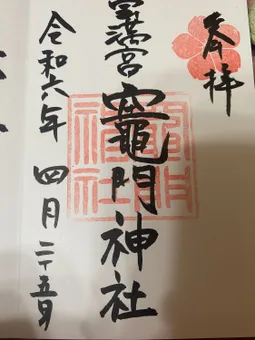 奉拝
宝満宮 竈門神社
令和六年 四月二十五日
竈門神社